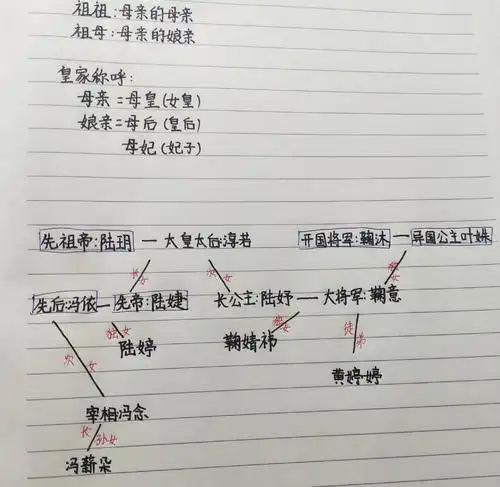 祖祖:母亲的母亲
祖母:母亲的娘亲
皇家称呼:
母亲=母皇(女皇)
娘亲=母后(皇后)
母妃(妃子)
先祖帝:陆玥 — 太皇太后淳若 开国将军:鞠沐 — 异国公主叶姝
长女 次女 独女
先后:冯依 — 先帝:陆婕 长公主:陆妤 — 大将军:鞠意
独女 独女 徒弟
陆婷 鞠婧祎
次女
黄婷婷
宰相冯念
长孙女
冯薪朵